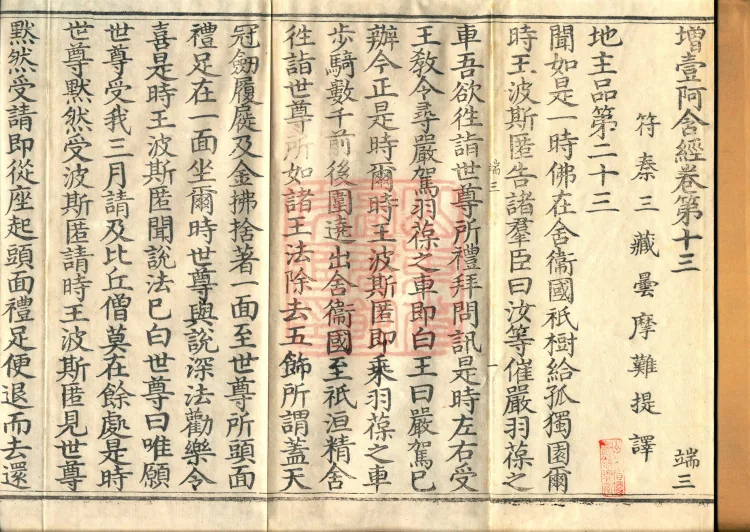 增壹阿舍經卷第十三 端三
符秦三藏曇摩難提譯
地主品第二十三
聞如是一時佛在舍衞國祇樹給孤獨園爾
時王波斯匿告諸羣臣曰汝等催嚴羽葆之
車吾欲往詣世尊所禮拜問訊是時左右受
王教令尋嚴駕羽葆之車即白王曰嚴駕已
辦今正是時爾時王波斯匿即乘羽葆之車
步騎數千前後圍遶出舍衞國至祇洹精舍
往詣世尊所如諸王法除去五飾所謂蓋天
冠劒履屣及金拂捨著一面至世尊所頭面
禮足在一面坐爾時世尊與說深法勸樂令
喜是時王波斯匿聞說法已白世尊曰唯願
世尊受我三月請及比丘僧莫在餘處是時
世尊默然受波斯匿請時王波斯匿見世尊
默然受請即從座起頭面禮足便退而去還
端三